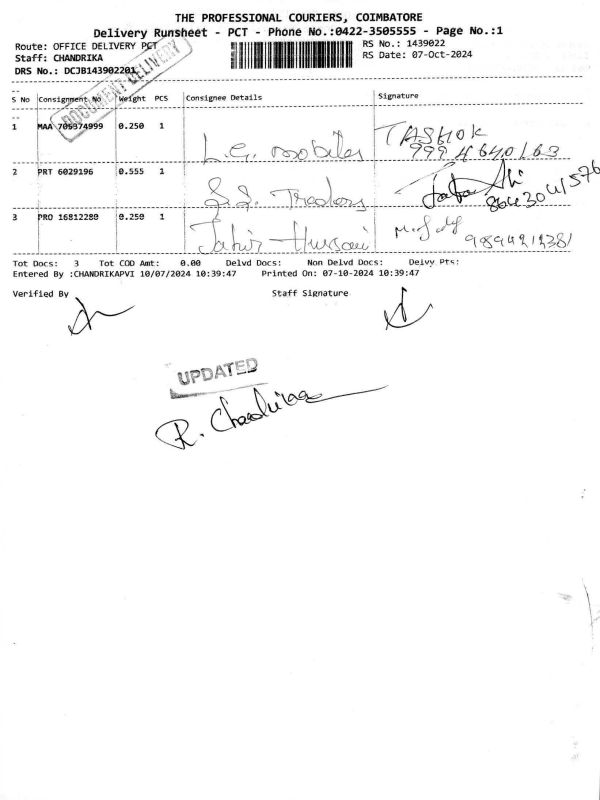 THE PROFESSIONAL COURIERS, COIMBATORE
Delivery Runsheet - PCT - Phone No.:0422-3505555 - Page No.:1
Route: OFFICE DELIVERY PCT
RS No.: 1439022
Staff: CHANDRIKA
RS Date: 07-Oct-2024
DRS No.: DCJB143902201
DOCUMENT DELIVERY
S No Consignment No Weight PCS Consignee Details Signature
1 MAA 705374999 0.250 1 L.G. mobiles T ASHOK
2 PRT 6029196 0.555 1 S.S. Traders
3 PRO 16812280 0.250 1 Tahir Hussain 9894212381
Tot Docs: 3 Tot COD Amt: 0.00 Delvd Docs: Non Delvd Docs: Delvy Pts:
Entered By :CHANDRIKAPVI 10/07/2024 10:39:47 Printed On: 07-10-2024 10:39:47
Verified By Staff Signature
UPDATED
R. Chandrika